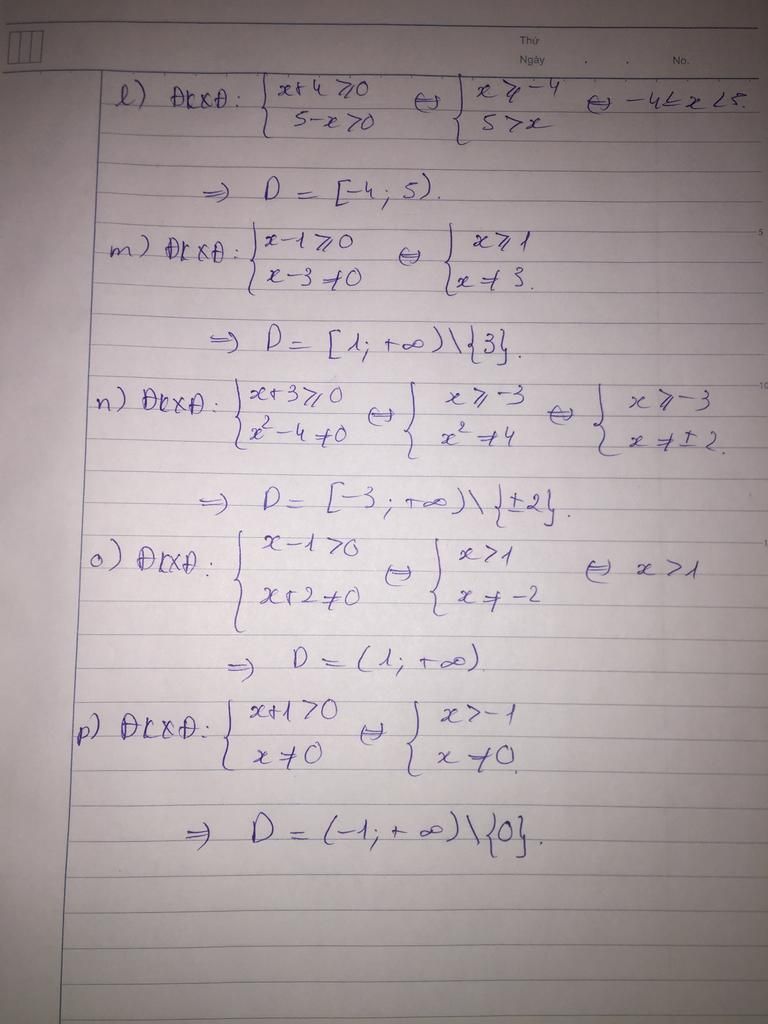 Thứ
Ngày . . No.
l) ĐKXĐ: { x+4 ⩾ 0 ; 5-x > 0 ⇔ { x ⩾ -4 ; 5 > x ⇔ -4 ≤ x < 5.
⇒ D = [-4; 5).
m) ĐKXĐ: { x-1 ⩾ 0 ; x-3 ≠ 0 ⇔ { x ⩾ 1 ; x ≠ 3.
5
⇒ D = [1; +∞)\{3}.
n) ĐKXĐ: { x+3 ⩾ 0 ; x²-4 ≠ 0 ⇔ { x ⩾ -3 ; x² ≠ 4 ⇔ { x ⩾ -3 ; x ≠ ±2.
10
⇒ D = [-3; +∞)\{±2}.
o) ĐKXĐ: { x-1 > 0 ; x+2 ≠ 0 ⇔ { x > 1 ; x ≠ -2 ⇔ x > 1
⇒ D = (1; +∞)
p) ĐKXĐ: { x+1 > 0 ; x ≠ 0 ⇔ { x > -1 ; x ≠ 0.
⇒ D = (-1; +∞)\{0}.